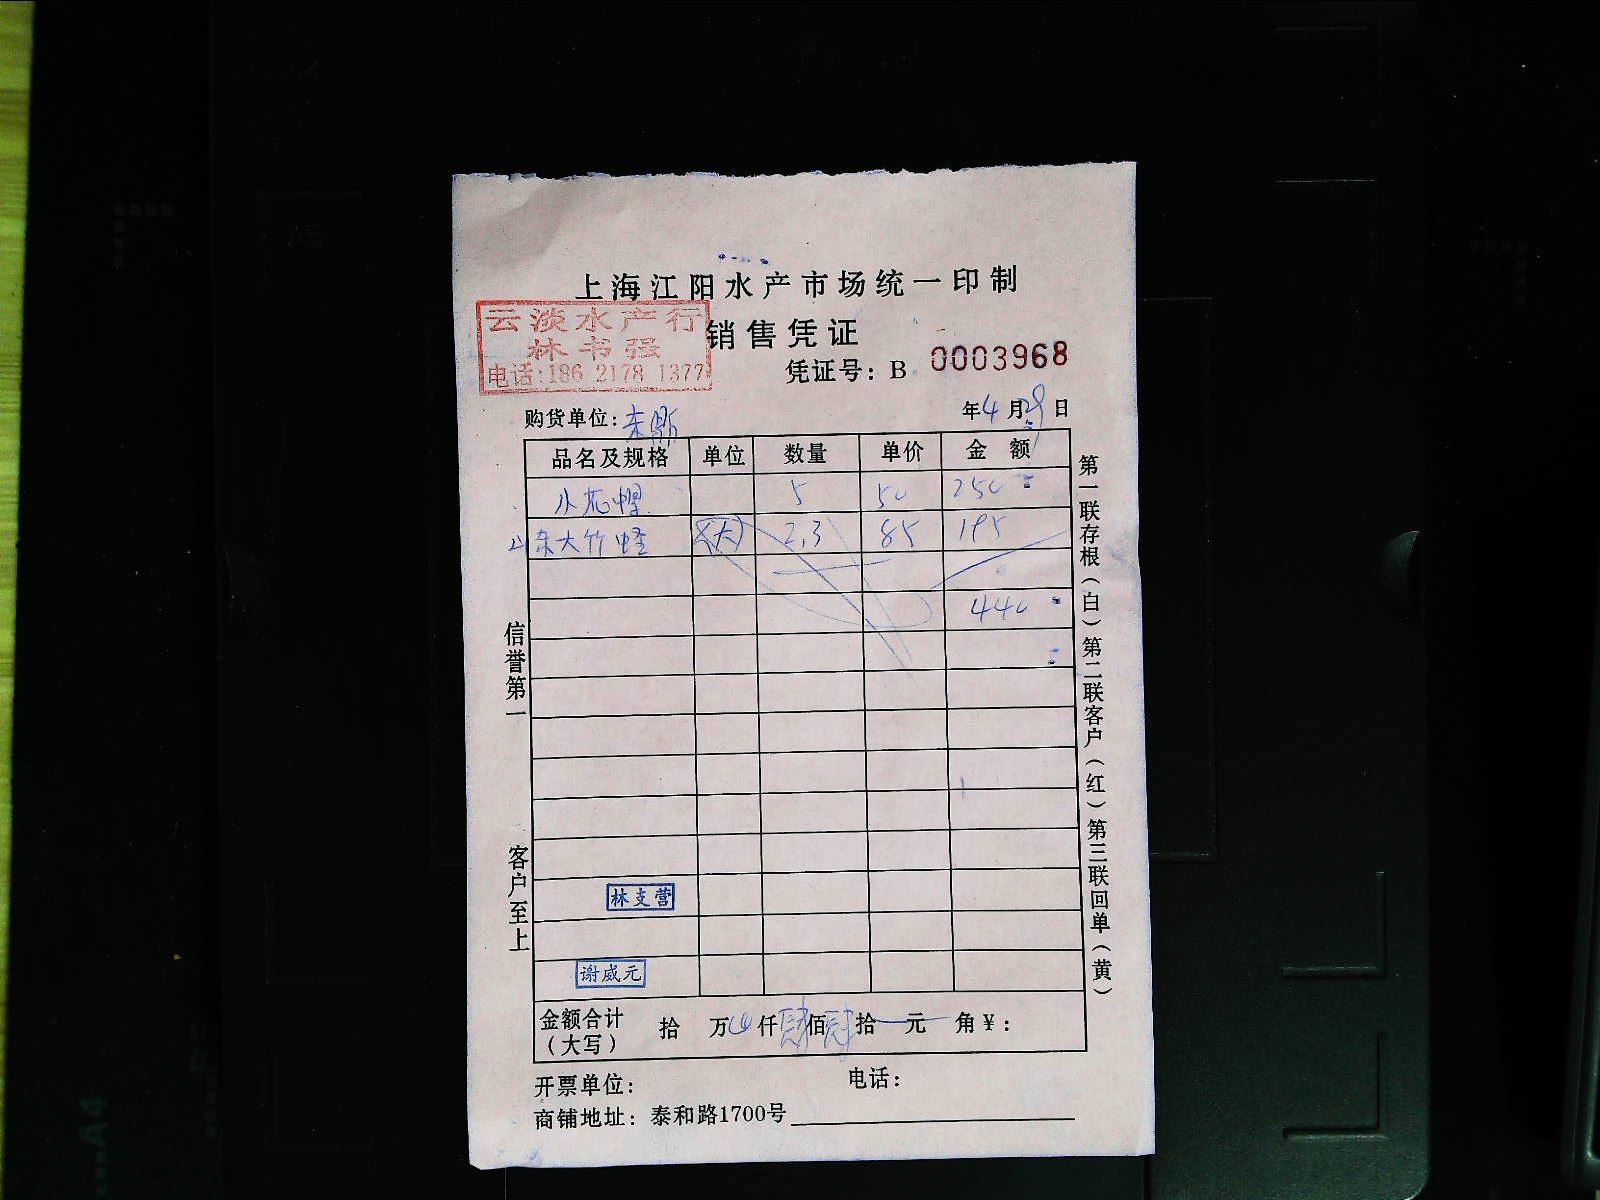 上海江阳水产市场统一印制
云淡水产行
林书强
电话:186 2178 1377
销售凭证
凭证号: B 0003968
购货单位: 东鼎
年4月29日
品名及规格 单位 数量 单价 金额
小花 5 50 250
山东大竹蛏 (大) 2.3 85 195
440
信誉第一
客户至上
林支营
谢威元
金额合计(大写) 拾 万 仟 肆 佰 肆 拾 元 角 ¥:
开票单位: 电话:
商铺地址: 泰和路1700号
第一联存根(白)第二联客户(红)第三联回单(黄)